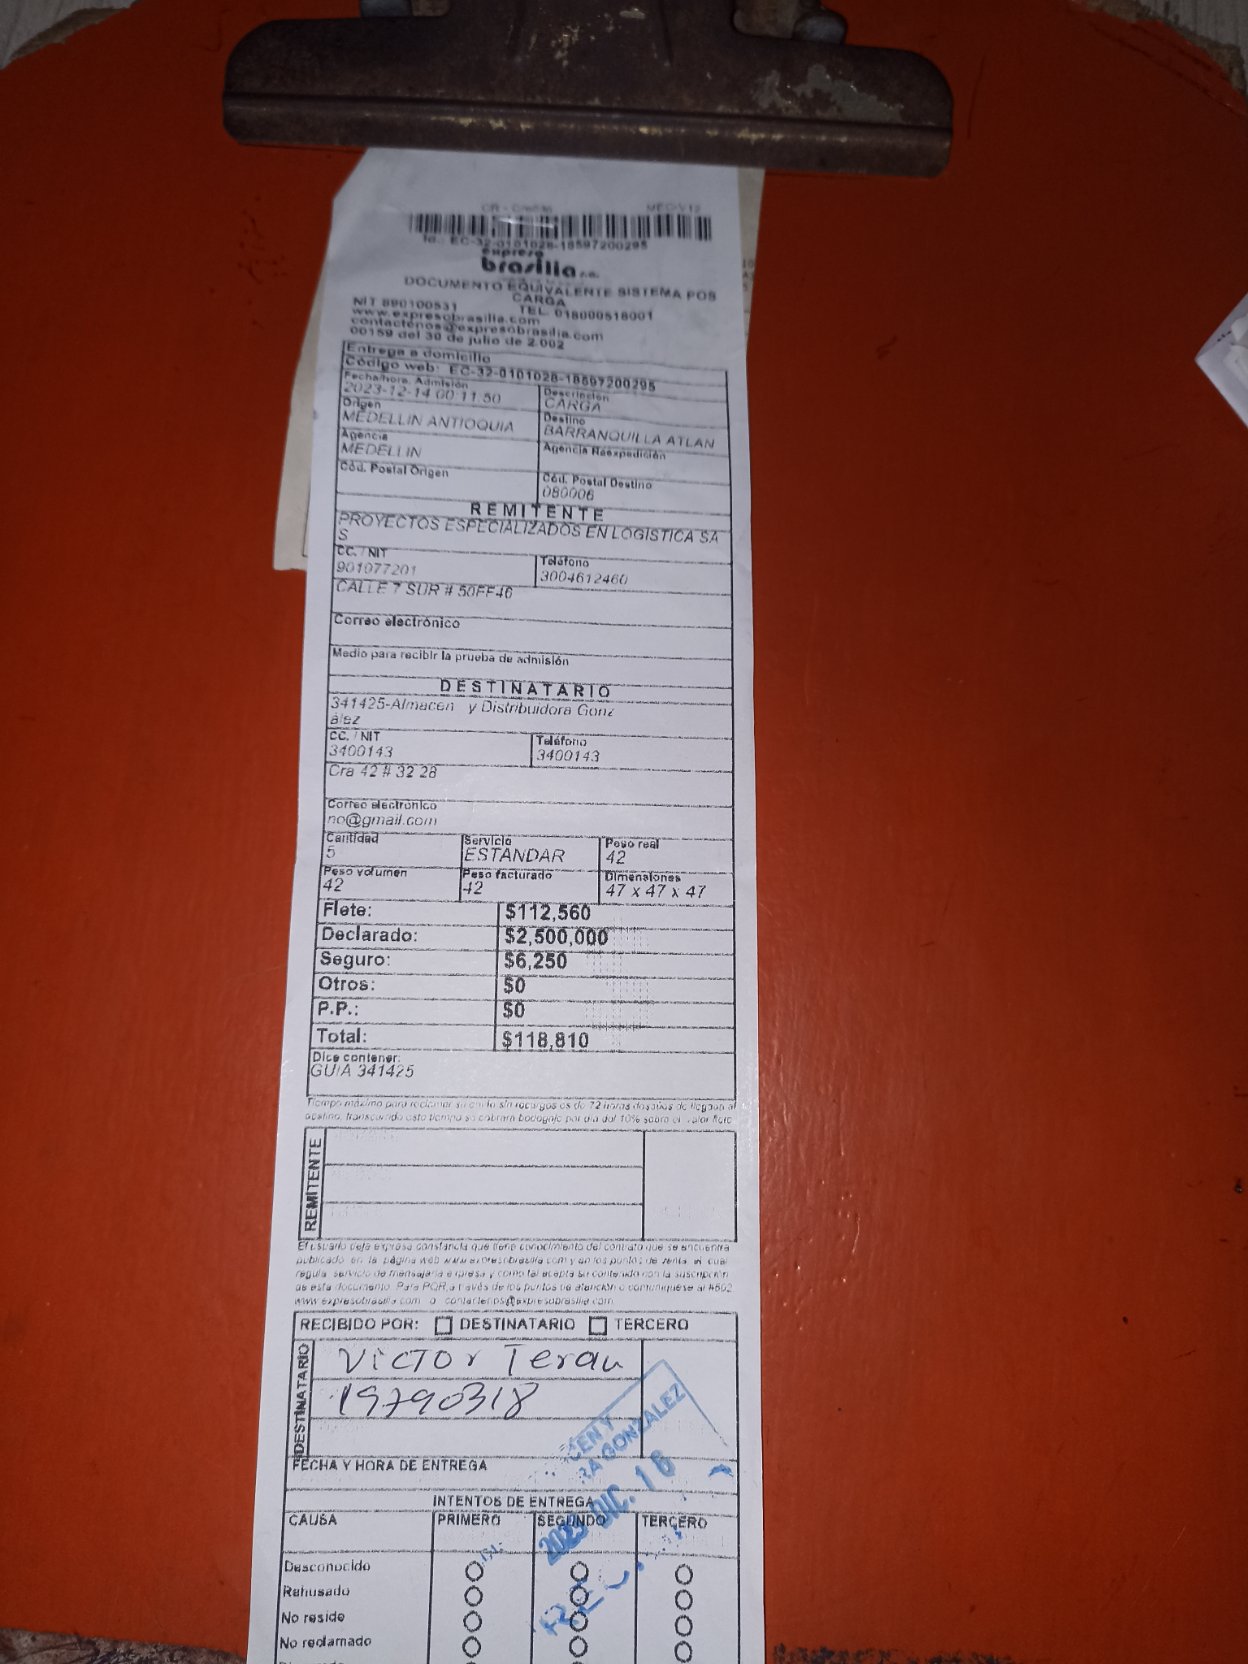 Id.: EC-32-0101028-18597200295
expreso
brasilia s.a.
DOCUMENTO EQUIVALENTE SISTEMA POS
CARGA
NIT 890100531 TEL. 018000518001
www.expresobrasilia.com
contactenos@expresobrasilia.com
00159 del 30 de julio de 2.002
Entrega a domicilio
Código web: EC-32-0101028-18597200295
Fecha/hora. Admisión Descripción
2023-12-14 00:11:50 CARGA
Origen Destino
MEDELLIN ANTIOQUIA BARRANQUILLA ATLAN
Agencia Agencia Reexpedición
MEDELLIN
Cód. Postal Origen Cód. Postal Destino
080006
REMITENTE
PROYECTOS ESPECIALIZADOS EN LOGISTICA SA
S
CC. / NIT Teléfono
901077201 3004612460
CALLE 7 SUR # 50FF46
Correo electrónico
Medio para recibir la prueba de admisión
DESTINATARIO
341425-Almacen y Distribuidora Gonz
alez
CC. / NIT Teléfono
3400143 3400143
Cra 42 # 32 28
Correo electrónico
no@gmail.com
Cantidad Servicio Peso real
5 ESTANDAR 42
Peso volumen Peso facturado Dimensiones
42 42 47 x 47 x 47
Flete: $112,560
Declarado: $2,500,000
Seguro: $6,250
Otros: $0
P.P.: $0
Total: $118,810
Dice contener:
GUIA 341425
Tiempo máximo para reclamar su envío sin recargos es de 72 horas después de llegada al
destino, transcurrido este tiempo se cobrará bodegaje por día del 10% sobre el valor flete
REMITENTE
El usuario deja expresa constancia que tiene conocimiento del contrato que se encuentra
publicado en la página web www.expresobrasilia.com y en los puntos de venta, el cual
regula servicio de mensajería expresa y como tal acepta su contenido con la suscripción
de este documento. Para PQR a través de los puntos de atención o comuníquese al #502
www.expresobrasilia.com o contactenos@expresobrasilia.com
RECIBIDO POR: DESTINATARIO TERCERO
DESTINATARIO
Victor Teran
19790318
CEN Y
RA GONZALEZ
FECHA Y HORA DE ENTREGA
2023 DIC. 16
INTENTOS DE ENTREGA
CAUSA PRIMERO SEGUNDO TERCERO
Desconocido
Rehusado
No reside
No reclamado